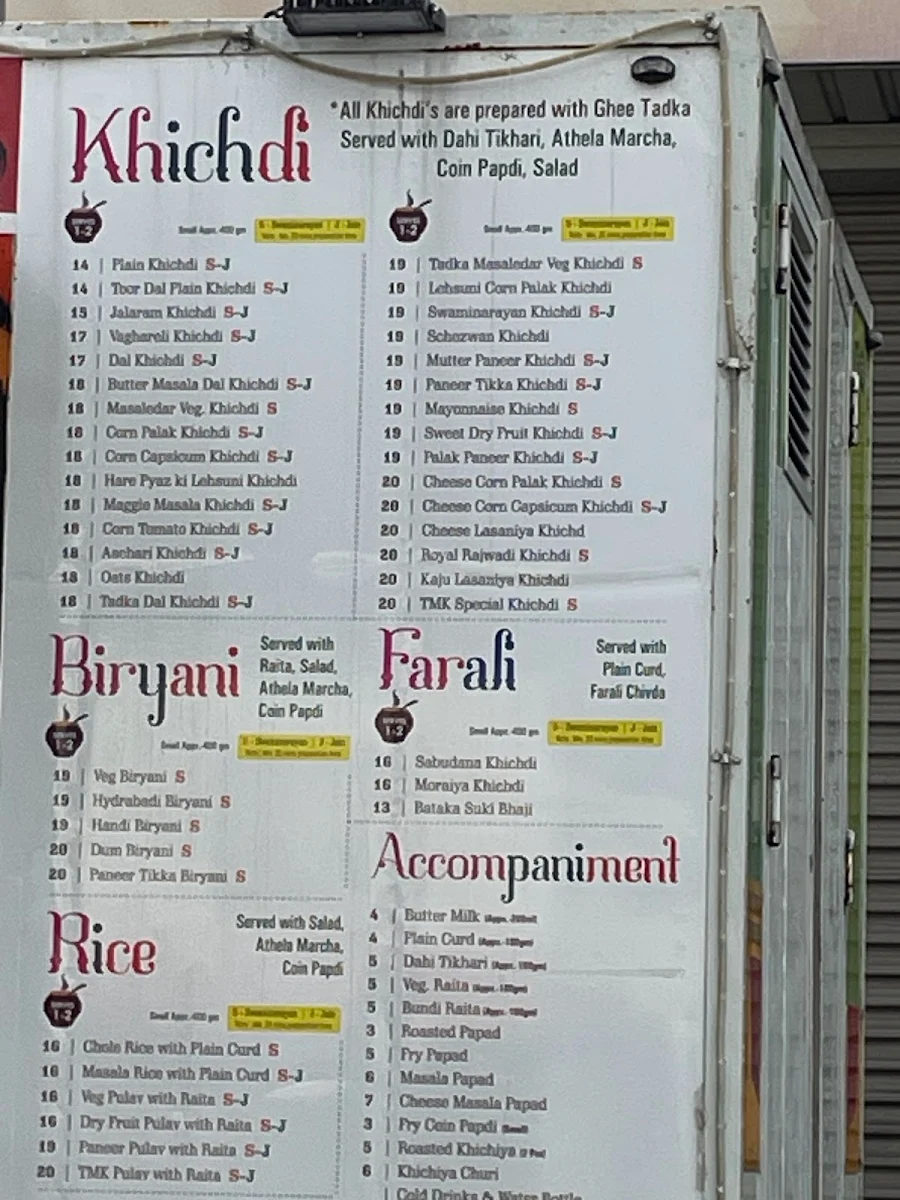 Khichdi
*All Khichdi's are prepared with Ghee Tadka
Served with Dahi Tikhari, Athela Marcha,
Coin Papdi, Salad
SERVES
1-2
Small Appx. 400 gm
S - Swaminarayan | J - Jain
14 | Plain Khichdi S-J
14 | Toor Dal Plain Khichdi S-J
15 | Jalaram Khichdi S-J
17 | Vaghareli Khichdi S-J
17 | Dal Khichdi S-J
18 | Butter Masala Dal Khichdi S-J
18 | Masaledar Veg. Khichdi S
18 | Corn Palak Khichdi S-J
18 | Corn Capsicum Khichdi S-J
18 | Hare Pyaz ki Lehsuni Khichdi
18 | Maggie Masala Khichdi S-J
18 | Corn Tomato Khichdi S-J
18 | Aachari Khichdi S-J
18 | Oats Khichdi
18 | Tadka Dal Khichdi S-J
SERVES
1-2
Small Appx. 400 gm
S - Swaminarayan | J - Jain
19 | Tadka Masaledar Veg Khichdi S
19 | Lehsuni Corn Palak Khichdi
19 | Swaminarayan Khichdi S-J
19 | Schezwan Khichdi
19 | Mutter Paneer Khichdi S-J
19 | Paneer Tikka Khichdi S-J
19 | Mayonnaise Khichdi S
19 | Sweet Dry Fruit Khichdi S-J
19 | Palak Paneer Khichdi S-J
20 | Cheese Corn Palak Khichdi S
20 | Cheese Corn Capsicum Khichdi S-J
20 | Cheese Lasaniya Khichd
20 | Royal Rajwadi Khichdi S
20 | Kaju Lasaniya Khichdi
20 | TMK Special Khichdi S
Biryani
Served with
Raita, Salad,
Athela Marcha,
Coin Papdi
SERVES
1-2
Small Appx. 400 gm
S - Swaminarayan | J - Jain
19 | Veg Biryani S
19 | Hydrabadi Biryani S
19 | Handi Biryani S
20 | Dum Biryani S
20 | Paneer Tikka Biryani S
Rice
Served with Salad,
Athela Marcha,
Coin Papdi
SERVES
1-2
Small Appx. 400 gm
S - Swaminarayan | J - Jain
16 | Chole Rice with Plain Curd S
16 | Masala Rice with Plain Curd S-J
16 | Veg Pulav with Raita S-J
16 | Dry Fruit Pulav with Raita S-J
19 | Paneer Pulav with Raita S-J
20 | TMK Pulav with Raita S-J
Farali
Served with
Plain Curd,
Farali Chivda
SERVES
1-2
Small Appx. 400 gm
S - Swaminarayan | J - Jain
16 | Sabudana Khichdi
16 | Moraiya Khichdi
13 | Bataka Suki Bhaji
Accompaniment
4 | Butter Milk
4 | Plain Curd
5 | Dahi Tikhari
5 | Veg. Raita
5 | Bundi Raita
3 | Roasted Papad
5 | Fry Papad
6 | Masala Papad
7 | Cheese Masala Papad
3 | Fry Coin Papdi (Small)
5 | Roasted Khichiya
6 | Khichiya Churi
| Cold Drinks & Water Bottle